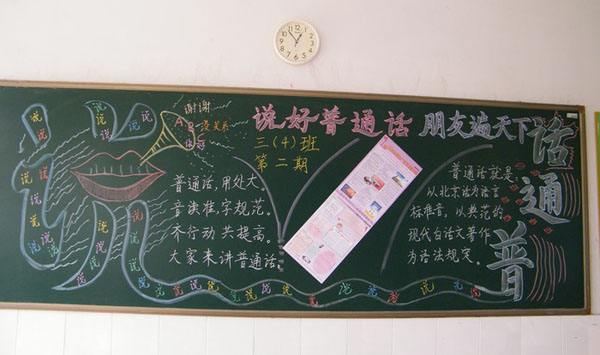 说好普通话 朋友遍天下
三(4)班
第二期
谢谢
没关系
A
B
C
普通话，用处大，
音读准，字规范。
齐行动 共提高。
大家来讲普通话。
普通话就是
以北京话为语言
标准音，以典范的
现代白话文著作
为语法规定。
话
通
普
说 说 说 说 说 说 说 说 说 说